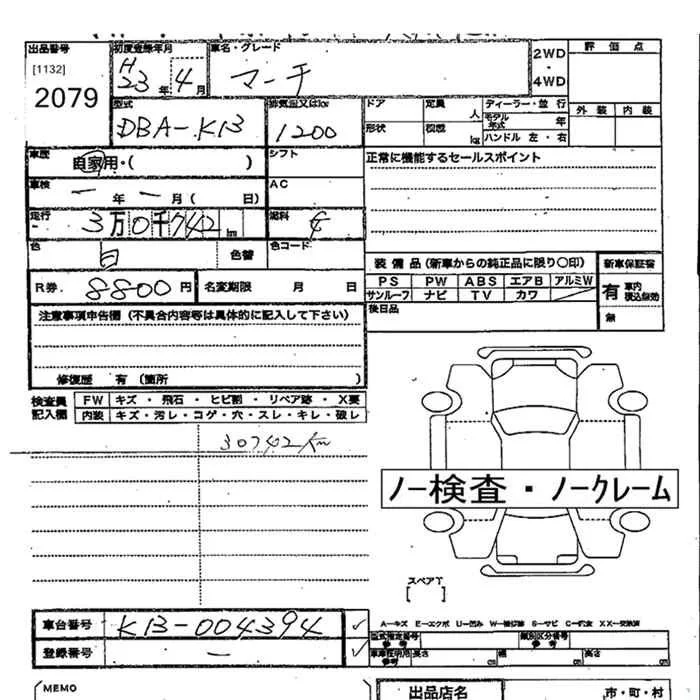 出品番号 初度登録年月 車名・グレード 2WD 評価点
[1132] H 23年 4月 マーチ ・
2079 4WD
型式 排気量又は ドア 定員 人 ディーラー・並行 外装 内装
DBA-K13 1200 形状 モデル年式 年
ハンドル 左・右
車歴 自家用・( ) シフト 正常に機能するセールスポイント
車検 一年 一月( 日) AC
走行 3万0千742km 燃料
色 白 色替 色コード
装備品(新車からの純正品に限り〇印) 新車保証書
R券. 8800円 名変期限 月 日 PS PW ABS エアB アルミW 有 車内
サンルーフ ナビ TV カワ
注意事項申告欄(不具合内容等は具体的に記入して下さい) 後日品 無
修復歴 有(箇所 )
検査員 FW キズ・飛石・ヒビ割・リペア跡・X要
記入欄 内装 キズ・汚レ・コゲ・穴・スレ・キレ・破レ
30742km
ノー検査・ノークレーム
スペアT
[ ]
車台番号 K13-004394 ✓ A-キズ E-エクボ U-凹み
登録番号 一 ✓ 型式指定番号 参考 類別区分番号 参考
参考 長さ cm 幅 cm 高さ cm
MEMO 出品店名 市・町・村